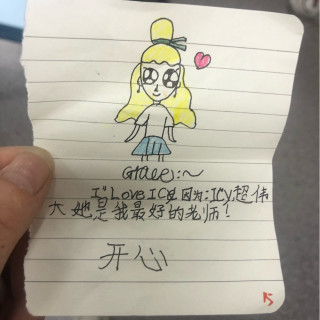 Grace:~
I"Love ICy 因为:ICy超伟
大 她是我最好的老师!
开心